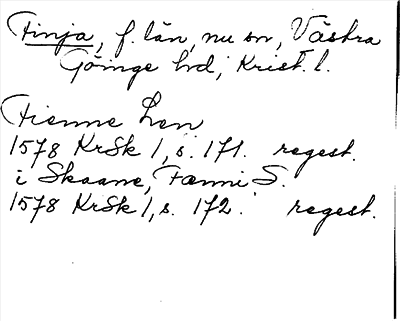 Finja, f. län, nu sn, Västra
Göinge hd, Krist. l.
Fienne Len
1578 KrSk 1, s. 171. regest.
i Skaane, Fænni S.
1578 KrSk 1, s. 172. regest.